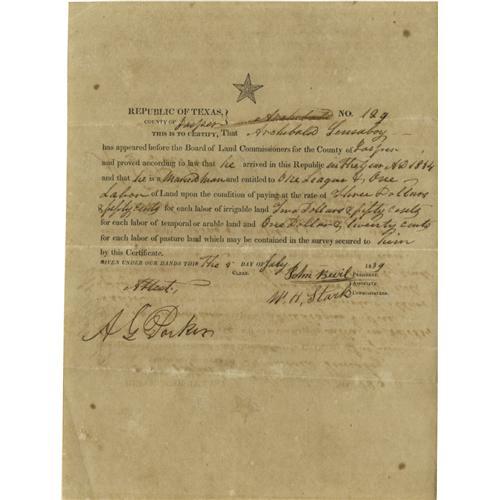 REPUBLIC OF TEXAS,
COUNTY OF Jasper No. 129
THIS IS TO CERTIFY, That Archibald
has appeared before the Board of Land Commissioners for the County of Jasper
and proved according to law that he arrived in this Republic in the year A.D 1834
and that he is a Married man and entitled to One League & One
Labor of Land upon the condition of paying at the rate of Three Dollars
& fifty cents for each labor of irrigable land Two Dollars & fifty cents
for each labor of temporal or arable land and One Dollar & twenty cents
for each labor of pasture land which may be contained in the survey secured to him
by this Certificate.
GIVEN UNDER OUR HANDS THIS The DAY OF July 1839
CLERK. John Bevil PRESIDENT.
Attest, ASSOCIATE
W. H. Stark COMMISSIONERS.
A G Parker